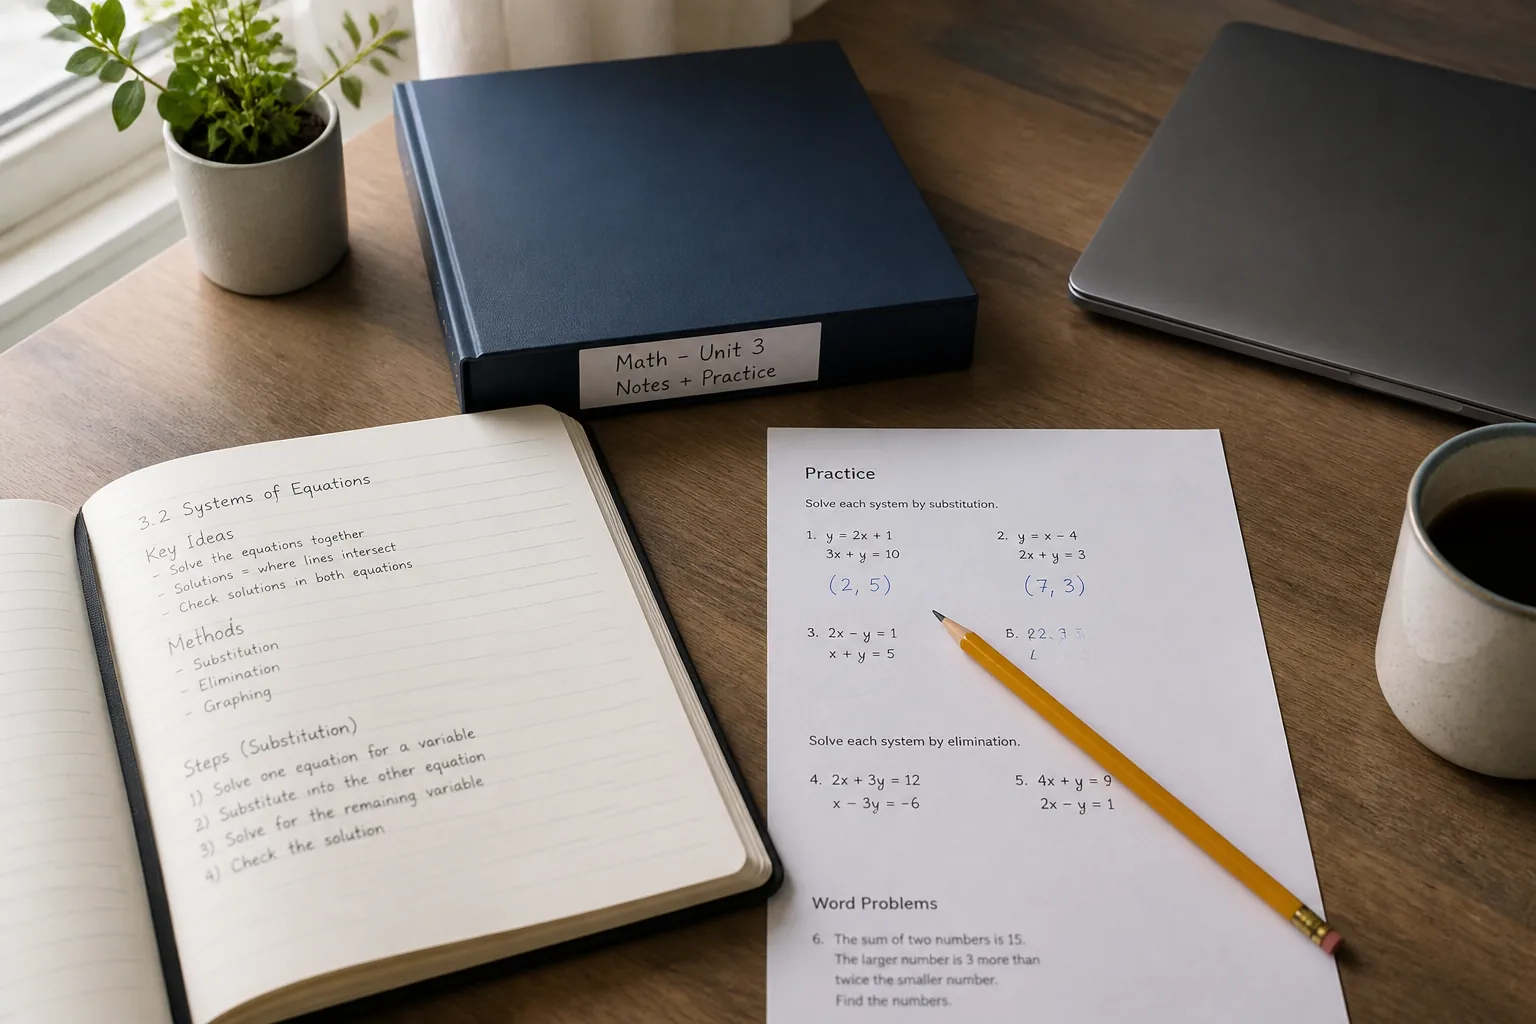 Math – Unit 3
Notes + Practice
3.2 Systems of Equations
Key Ideas
- Solve the equations together
- Solutions = where lines intersect
- Check solutions in both equations
Methods
- Substitution
- Elimination
- Graphing
Steps (Substitution)
1) Solve one equation for a variable
2) Substitute into the other equation
3) Solve for the remaining variable
4) Check the solution
Practice
Solve each system by substitution.
1. y = 2x + 1
3x + y = 10
(2, 5)
2. y = x – 4
2x + y = 3
(7, 3)
3. 2x – y = 1
x + y = 5
Solve each system by elimination.
4. 2x + 3y = 12
x – 3y = –6
5. 4x + y = 9
2x – y = 1
Word Problems
6. The sum of two numbers is 15.
The larger number is 3 more than
twice the smaller number.
Find the numbers.